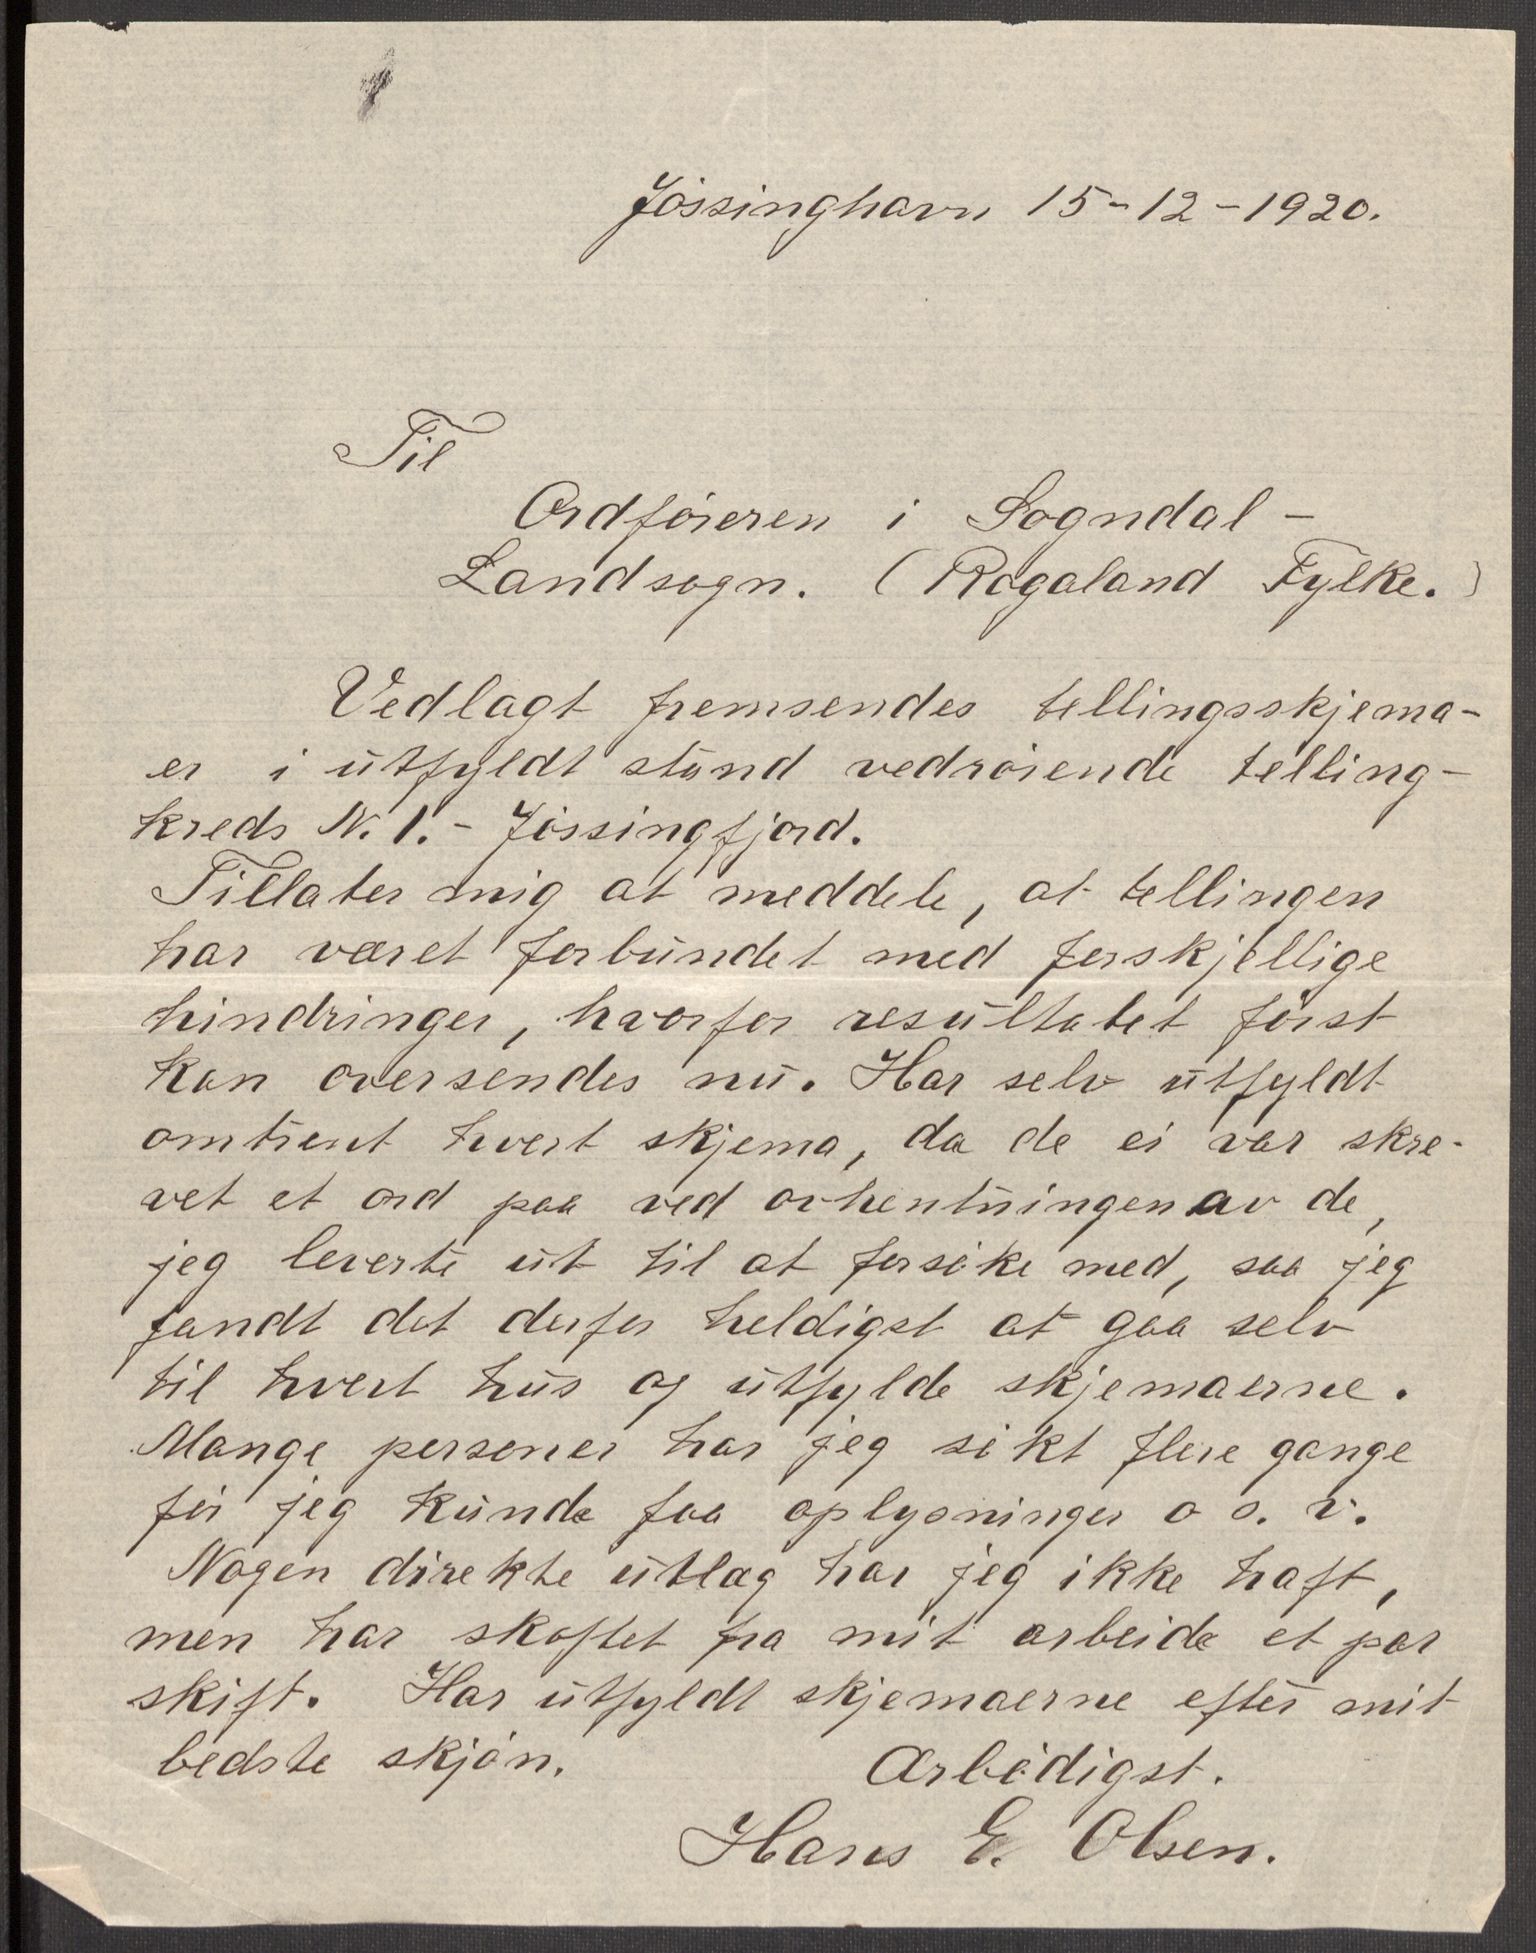 Jössinghavn 15-12-1920.
Til
Ordföreren i Sogndal -
Landsogn. (Rogaland Fylke.)
Vedlagt fremsendes tellingsskjema-
er i utfyldt stand vedrörende telling-
kreds N. 1. - Jössingfjord.
Tillater mig at meddele, at tellingen
har været forbundet med forskjellige
hindringer, hvorfor resultatet först
kan oversendes nu. Har selv utfyldt
omtrent hvert skjema, da de ei var skre-
vet et ord paa ved avhentningen av de,
jeg leverte ut til at forsöke med, saa jeg
fandt det derfor heldigst at gaa selv
til hvert hus og utfylde skjemaerne.
Mange personer har jeg sökt flere gange
för jeg kunde faa oplysninger o s. v.
Nogen direkte utlæg har jeg ikke haft,
men har skoftet fra mit arbeide et par
skift. Har utfyldt skjemaerne efter mit
bedste skjön.
Arbödigst.
Hans E. Olsen.